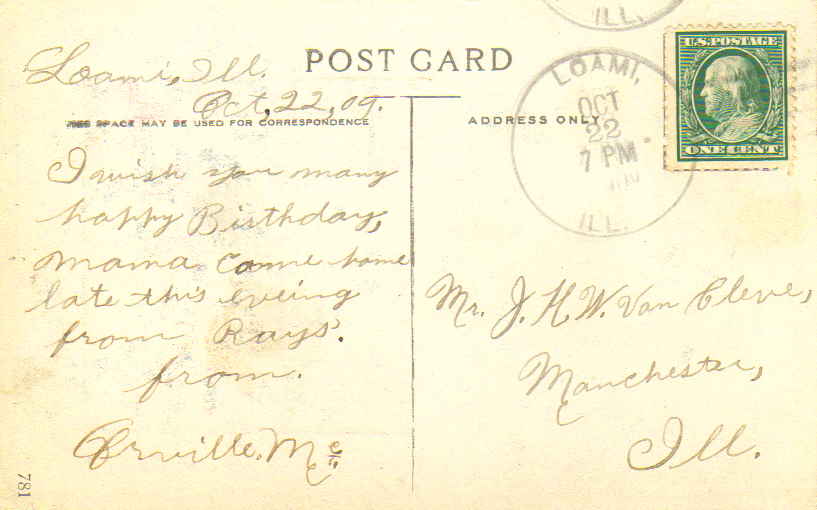 ILL.
POST CARD
Loami, Ill.
Oct, 22, 09.
THIS SPACE MAY BE USED FOR CORRESPONDENCE
ADDRESS ONLY
LOAMI,
OCT
22
7 PM
ILL.
U.S. POSTAGE
ONE CENT
I wish you many
happy Birthday,
mama came home
late this eveing
from Rays'.
from.
Orville. Mc
Mr. J. H. W. Van Cleve,
Manchester,
Ill.
781